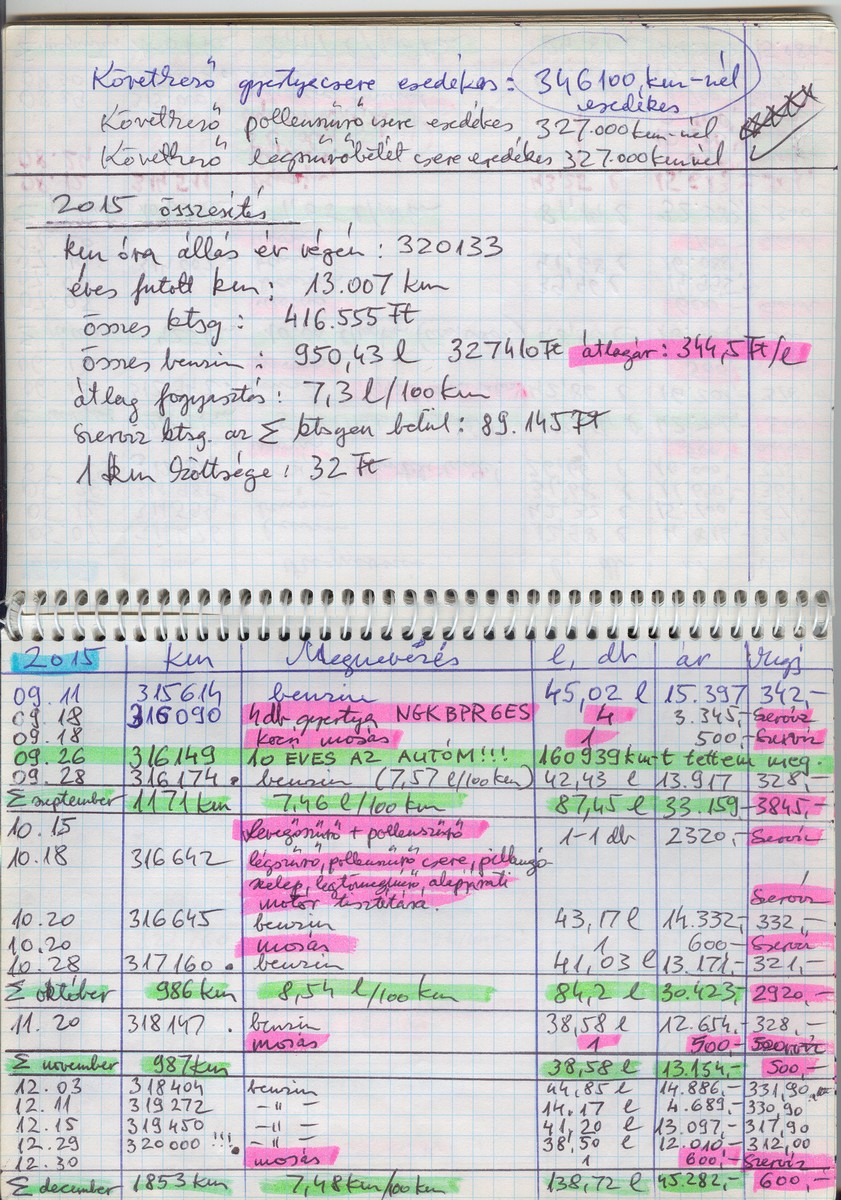 Következő gyertyacsere esedékes: 346100 km-nél
esedékes
Következő pollenszűrő csere esedékes 327.000 km-nél
Következő légszűrőbetét csere esedékes 327.000 km-nél
2015 összesítés
km óra állás év végén: 320133
éves futott km: 13.007 km
összes ktsg: 416.555 Ft
összes benzin: 950,43 l 327410 Ft átlagár: 344,5 Ft/l
átlag fogyasztás: 7,3 l/100 km
szerviz ktsg. az Σ ktsgen belül: 89.145 Ft
1 km költsége: 32 Ft
2015 km Megnevezés l, db ár
09.11 315614 benzin 45,02 l 15.397 342,-
09.18 316090 4db gyertya NGK BPR6ES 4 3.345,- Szerviz
09.18 kocsi mosás 1 500,- Szerviz
09.26 316149 10 ÉVES AZ AUTÓM!!! 160939 km-t tettem meg.
09.28 316174. benzin (7,57 l/100 km) 42,43 l 13.917 328,-
Σ september 1171 km 7,46 l/100 km 87,45 l 33.159 3845,-
10.15 Levegőszűrő + pollenszűrő 1-1 db 2320,- Szerviz
10.18 316642 légszűrő, pollenszűrő csere, pillangó
szelep, légtömegmérő, alapjárati
motor tisztítása. Szerviz
10.20 316645 benzin 43,17 l 14.332,- 332,-
10.20 mosás 1 600- Szerviz
10.28 317160. benzin 41,03 l 13.171,- 321,-
Σ október 986 km 8,54 l/100 km 84,2 l 30.423,- 2920,-
11.20 318147. benzin 38,58 l 12.654,- 328,-
mosás 1 500,-
Σ november 987 km 38,58 l 13.154,- 500,-
12.03 318404 benzin 44,85 l 14.886,- 331,90
12.11 319272 -"- 14,17 l 4.689,- 330,90
12.15 319450 -"- 41,20 l 13.097,- 317,90
12.29 320000 !!!. -"- 38,50 l 12.010,- 312,00
12.30 mosás 1 600,- Szerviz
Σ december 1853 km 7,48 km/100 km 138,72 l 45.282,- 600,-